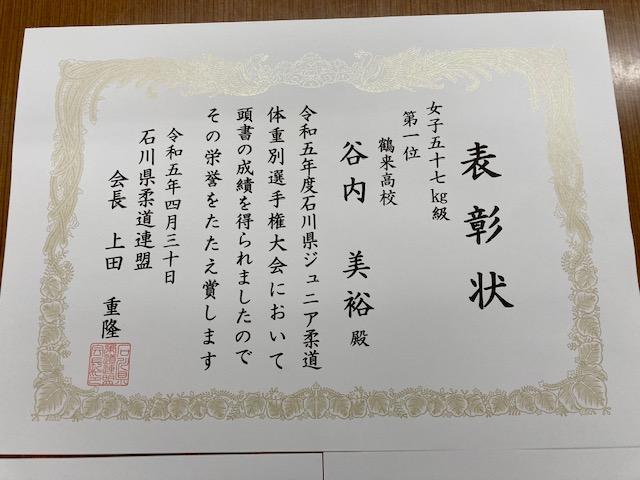 表彰状
女子五十七kg級
第一位
鶴来高校
谷内 美裕 殿
令和五年度石川県ジュニア柔道
体重別選手権大会において
頭書の成績を得られましたので
その栄誉をたたえ賞します
令和五年四月三十日
石川県柔道連盟
会長 上田 重隆